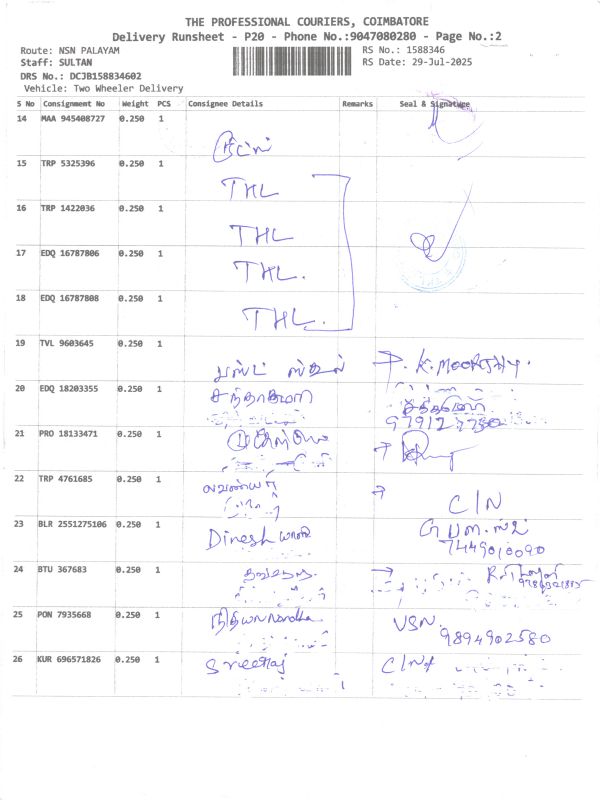 THE PROFESSIONAL COURIERS, COIMBATORE
Delivery Runsheet - P20 - Phone No.:9047080280 - Page No.:2
Route: NSN PALAYAM
RS No.: 1588346
Staff: SULTAN
RS Date: 29-Jul-2025
DRS No.: DCJB158834602
Vehicle: Two Wheeler Delivery
S No Consignment No Weight PCS Consignee Details Remarks Seal & Signature
14 MAA 945408727 0.250 1
15 TRP 5325396 0.250 1
THL
16 TRP 1422036 0.250 1
THL
17 EDQ 16787806 0.250 1
THL.
18 EDQ 16787808 0.250 1
THL.
19 TVL 9603645 0.250 1
P. K. MOORTHY.
20 EDQ 18203355 0.250 1
21 PRO 18133471 0.250 1
22 TRP 4761685 0.250 1
C/N
23 BLR 2551275106 0.250 1
Dinesh
7449010090
24 BTU 367683 0.250 1
25 PON 7935668 0.250 1
VSN.
9894902580
26 KUR 696571826 0.250 1
Sreeraj
C/N